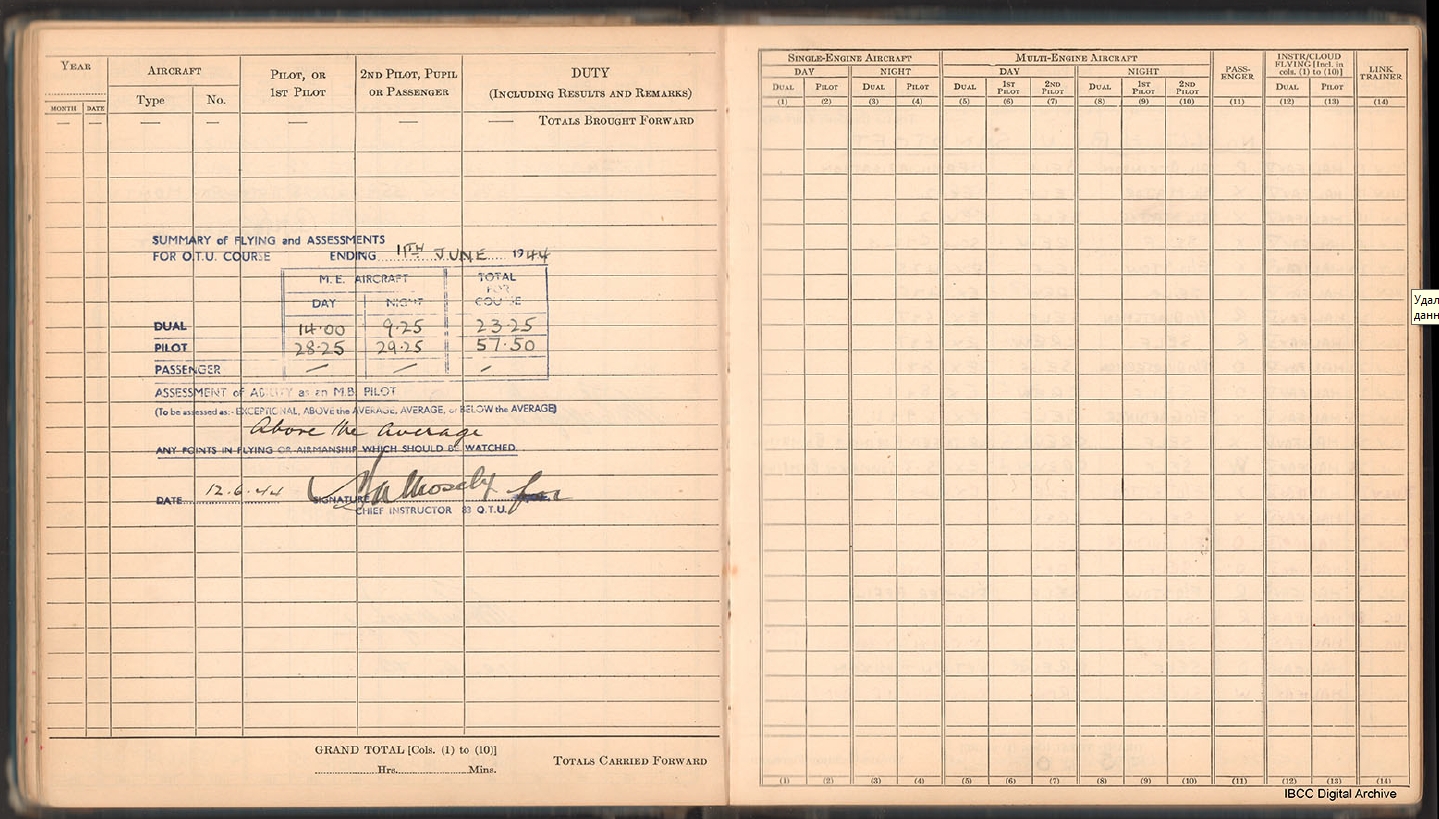 YEAR
AIRCRAFT
PILOT, OR
1ST PILOT
2ND PILOT, PUPIL
OR PASSENGER
DUTY
(INCLUDING RESULTS AND REMARKS)
MONTH DATE Type No.
— — — — — — — TOTALS BROUGHT FORWARD
SUMMARY of FLYING and ASSESSMENTS
FOR O.T.U. COURSE ENDING 11TH JUNE 1944
M.E. AIRCRAFT TOTAL FOR COURSE
DAY NIGHT
DUAL 14·00 9·25 23·25
PILOT 28·25 29·25 57·50
PASSENGER — — —
ASSESSMENT of ABILITY as an M.B. PILOT
(To be assessed as:- EXCEPTIONAL, ABOVE the AVERAGE, AVERAGE, or BELOW the AVERAGE)
Above the Average
ANY POINTS IN FLYING OR AIRMANSHIP WHICH SHOULD BE WATCHED.
DATE 12.6.44 SIGNATURE for
CHIEF INSTRUCTOR 83 O.T.U.
GRAND TOTAL [Cols. (1) to (10)]
Hrs. Mins.
TOTALS CARRIED FORWARD
SINGLE-ENGINE AIRCRAFT MULTI-ENGINE AIRCRAFT PASS-ENGER INSTR/CLOUD FLYING [Incl. in cols. (1) to (10)] LINK TRAINER
DAY NIGHT DAY NIGHT
DUAL PILOT DUAL PILOT DUAL 1ST PILOT 2ND PILOT DUAL 1ST PILOT 2ND PILOT DUAL PILOT
(1) (2) (3) (4) (5) (6) (7) (8) (9) (10) (11) (12) (13) (14)
(1) (2) (3) (4) (5) (6) (7) (8) (9) (10) (11) (12) (13) (14)
IBCC Digital Archive
Удал
данн